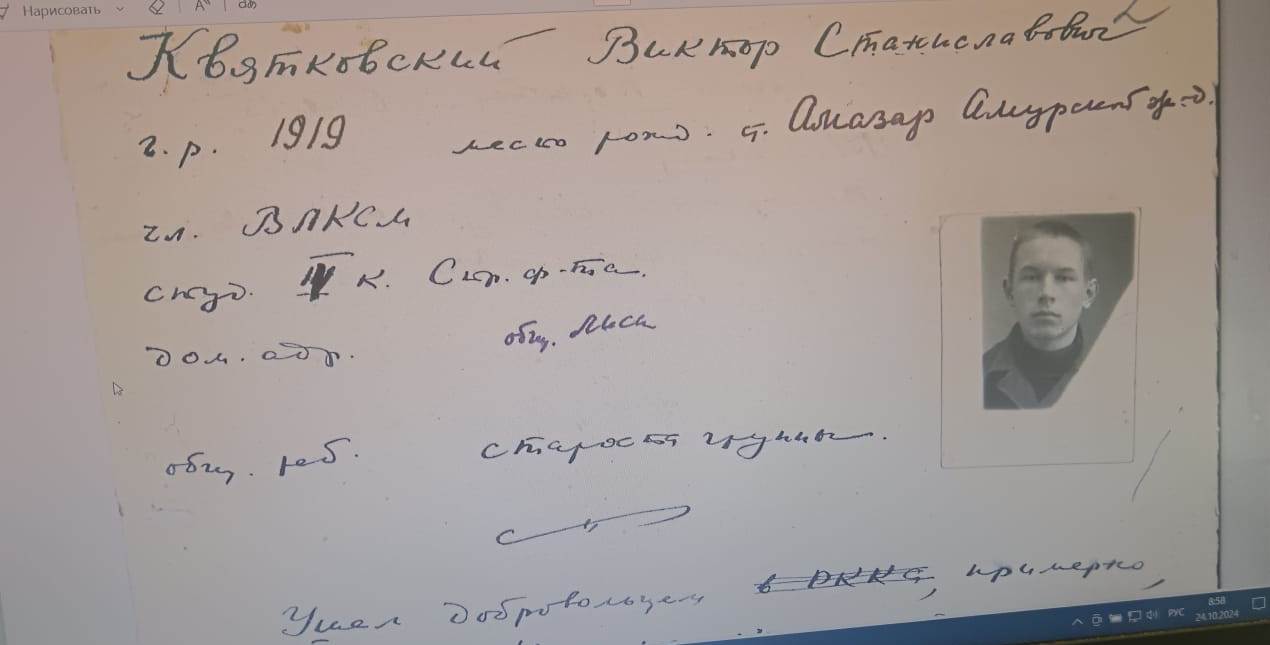 Нарисовать
Квятковский Виктор Станиславович
г. р. 1919 место рожд. ст. Амазар Амурской ж.-д.
чл. ВЛКСМ
студ. IV к. Стр. ф-та.
дом. адр. общ. ЛИСИ
общ. раб. староста группы.
Ушел добровольцем в РККА, примерно,
РУС
8:58
24.10.2024